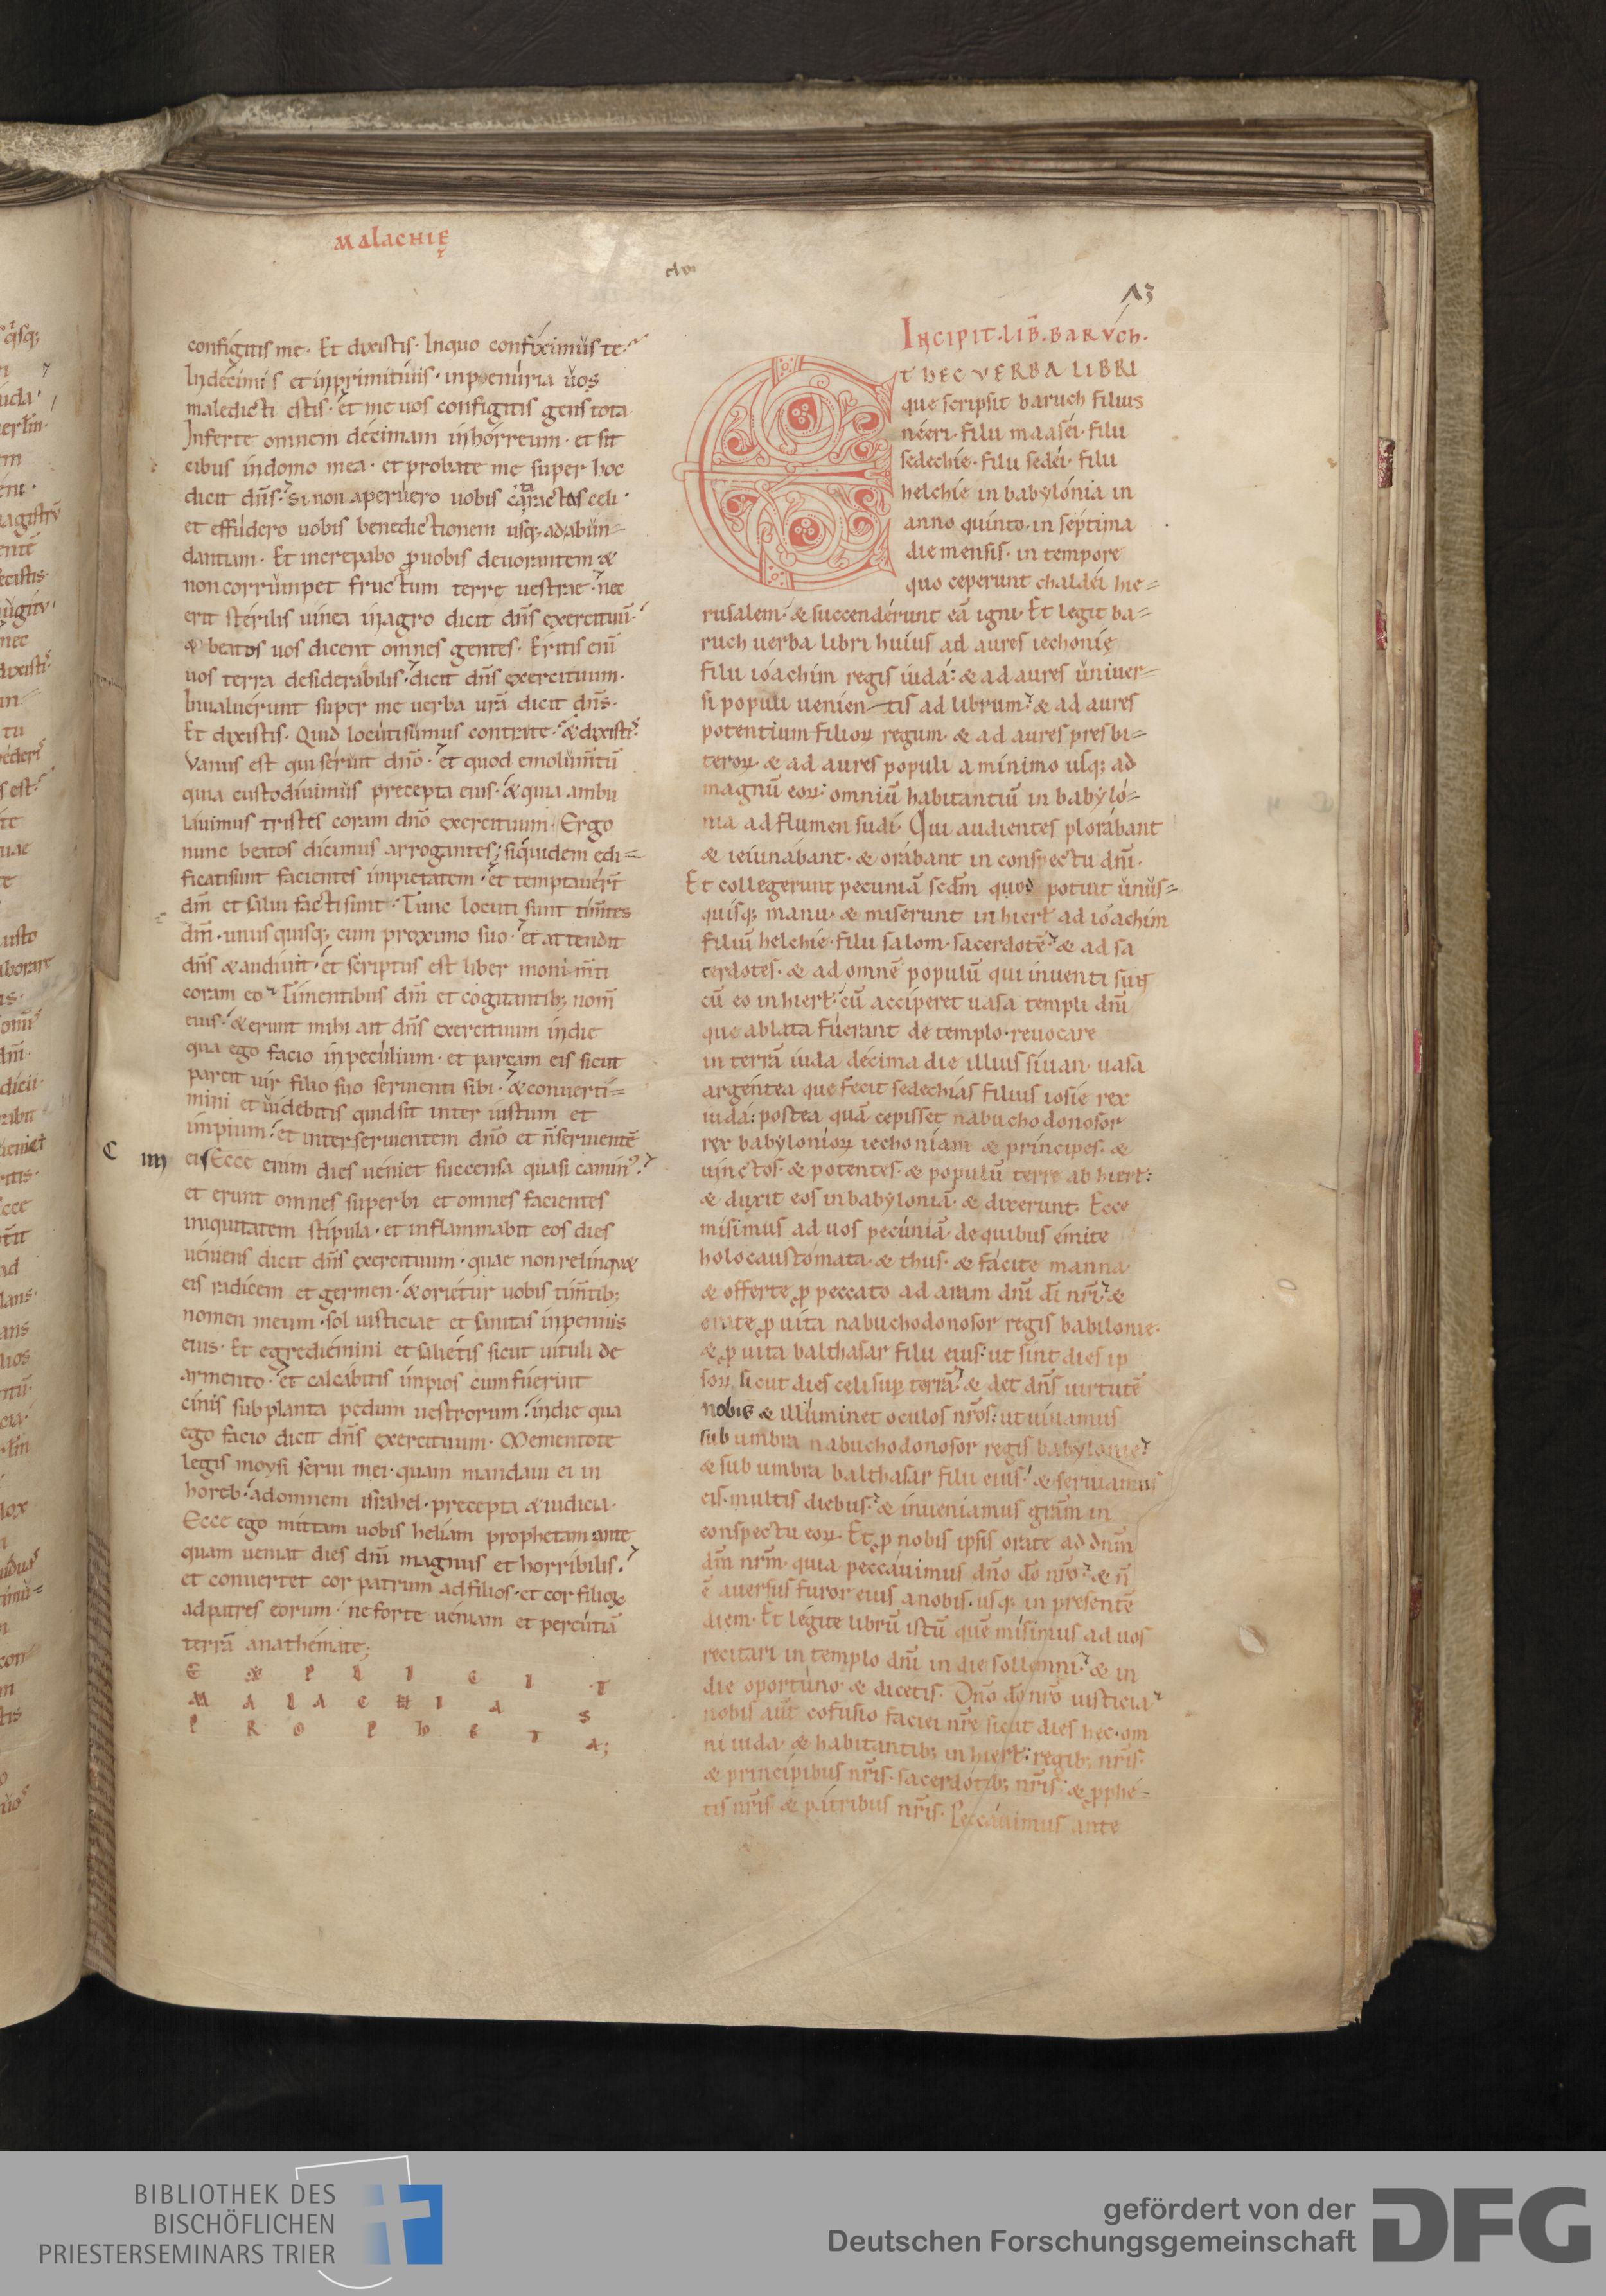 malachię
clvi
configitis me· Et dixistis· Inquo confiximus te·
In decimis et inprimitiuis· inpoenuria uos
maledicti estis· et me uos configitis gens tota
Inferte omnem decimam inhorreum· et sit
cibus indomo mea· et probate me super hoc
dicit dñs· si non aperuero uobis caractas celi·
et effudero uobis benedictionem usq; adabun=
dantiam· Et increpabo ꝓuobis deuorantem &
non corrumpet fructum terrę uestrae· nec
erit sterilis uinea inagro dicit dñs exercituũ·
& beatos uos dicent omnes gentes· Eritis eni
uos terra desiderabilis· dicit dñs exercituum·
Inualuerunt super me uerba urã dicit dñs·
Et dixistis· Quid locutisumus contrate· & dixistis
Vanus est qui seruit dnõ· et quod emolumtũ
quia custodiuimus precepta eius· & quia ambu
lauimus tristes coram dnõ exercituum· Ergo
nunc beatos dicimus arrogantes; siquidem edi=
ficatisunt facientes impietatem· et temptauert
dm̃ et salui facti sunt· Tunc locuti sunt tim̃tes
dm̃· unus quisq; cum proximo suo· et attendit
dñs & audiuit· et scriptus est liber monim̃ti
coram eo· Timentibus dm̃ et cogitantib; nom̃
eius· & erunt mihi ait dñs exercituum indie
qua ego facio inpeculium· et parcam eis sicut
parcit uir filio suo seruienti sibi· & conuerti=
mini et uidebitis quidsit inter iustum et
impium· et inter seruientem dnõ et ñseruientẽ
C iiij ei Ecce enim dies ueniet succensa quasi camin9·
et erunt omnes superbi et omnes facientes
iniquitatem stipula· et inflammabit eos dies
ueniens dicit dñs exercituum· quae non relinqu&
eis radicem et germen· & orietur uobis tim̃tib;
nomen meum· sol iusticiae et sanitas inpennis
eius· Et egrediemini et salietis sicut uituli de
armento· et calcabitis impios cum fuerint
cinis sub planta pedum uestrorum· indie qua
ego facio dicit dñs exercituum· Mementote
legis moysi serui mei· quam mandaui ei in
horeb· adomnem israhel· precepta & iudicia·
Ecce ego mittam uobis heliam prophetam ante
quam ueniat dies dm̃ magnus et horribilis·
et conuertet cor patrum ad filios· et cor filioꝝ
adpatres eorum· ne forte ueniam et percutiã
terrã anathemate;
E X P L I C I T
M A L A C H I A S
P R O P h E T A;
Incipit·lib̃·baruch·
T HEC VERBA LIBRI
que scripsit baruch filius
neeri· filii maasei· filii
sedechie· filii sedei· filii
helchie in babylonia in
anno quinto· in septima
die mensis· in tempore
quo ceperunt chaldei hie=
rusalem· & succenderunt eã igni· Et legit ba=
ruch uerba libri huius ad aures iechonię
filii ioachim regis iuda: & ad aures uniuer=
si populi uenien tis ad librum· & ad aures
potentium filioꝝ regum· & ad aures presbi=
teroꝝ· & ad aures populi a minimo usq; ad
magnũ eoꝝ: omniũ habitantiũ in babylo=
nia ad flumen sudi· Qui audientes plorabant
& ieiunabant· & orabant in conspectu dnĩ·
Et collegerunt pecuniã scdm̃ quod potuit unus=
quisq; manu· & miserunt in hierł ad ioachim
filiũ helchie· filii salom· sacerdotẽ & ad sa
cerdotes· & ad omnẽ populũ qui inuenti sunt
cũ eo in hierł· cũ acciperet uasa templi dnĩ
que ablata fuerant de templo· reuocare
in terrã iuda decima die illius siuan· uasa
argentea que fecit sedechias filius iosie rex
iuda: postea quã cepisset nabuchodonosor
rex babylonioꝝ iechoniam & principes· &
uinctos· & potentes· & populũ terre ab hierł:
& duxit eos in babyloniã· & dixerunt· Ecce
misimus ad uos pecuniã· de quibus emite
holocaustomata· & thus· & facite manna·
& offerte ꝓ peccato ad aram dnĩ dĩ nrĩ· &
orate ꝓ uita nabuchodonosor regis babilonie·
& ꝓ uita balthasar filii eius: ut sint dies ip
soꝝ sicut dies celi sup terrã· & det dñs uirtutẽ
nobis & illuminet oculos nrõs: ut uiuamus
sub umbra nabuchodonosor regis babylonie·
& sub umbra balthasar filii eius· & seruiamus
eis· multis diebus· & inueniamus gram̃ in
conspectu eoꝝ· Et ꝓ nobis ipsis orate ad dnm̃
dm̃ nrm̃· quia peccauimus dnõ dõ nrõ· & ñ
ẽ auersus furor eius a nobis· usq; in presentẽ
diem· Et legite librũ istũ quẽ misimus ad uos
recitari in templo dnĩ in die sollemni· & in
die oportuno· & dicetis· Dnõ dõ nrõ iusticia·
nobis aut̃ cofusio faciei nrẽ sicut dies hec· om
ni iuda· & habitantib; in hierł: regib; nrĩs·
& principibus nrĩs· sacerdotib; nrĩs· & ꝓphe=
tis nrĩs & patribus nrĩs· Peccauimus ante
BIBLIOTHEK DES
BISCHÖFLICHEN
PRIESTERSEMINARS TRIER
gefördert von der
Deutschen Forschungsgemeinschaft
DFG